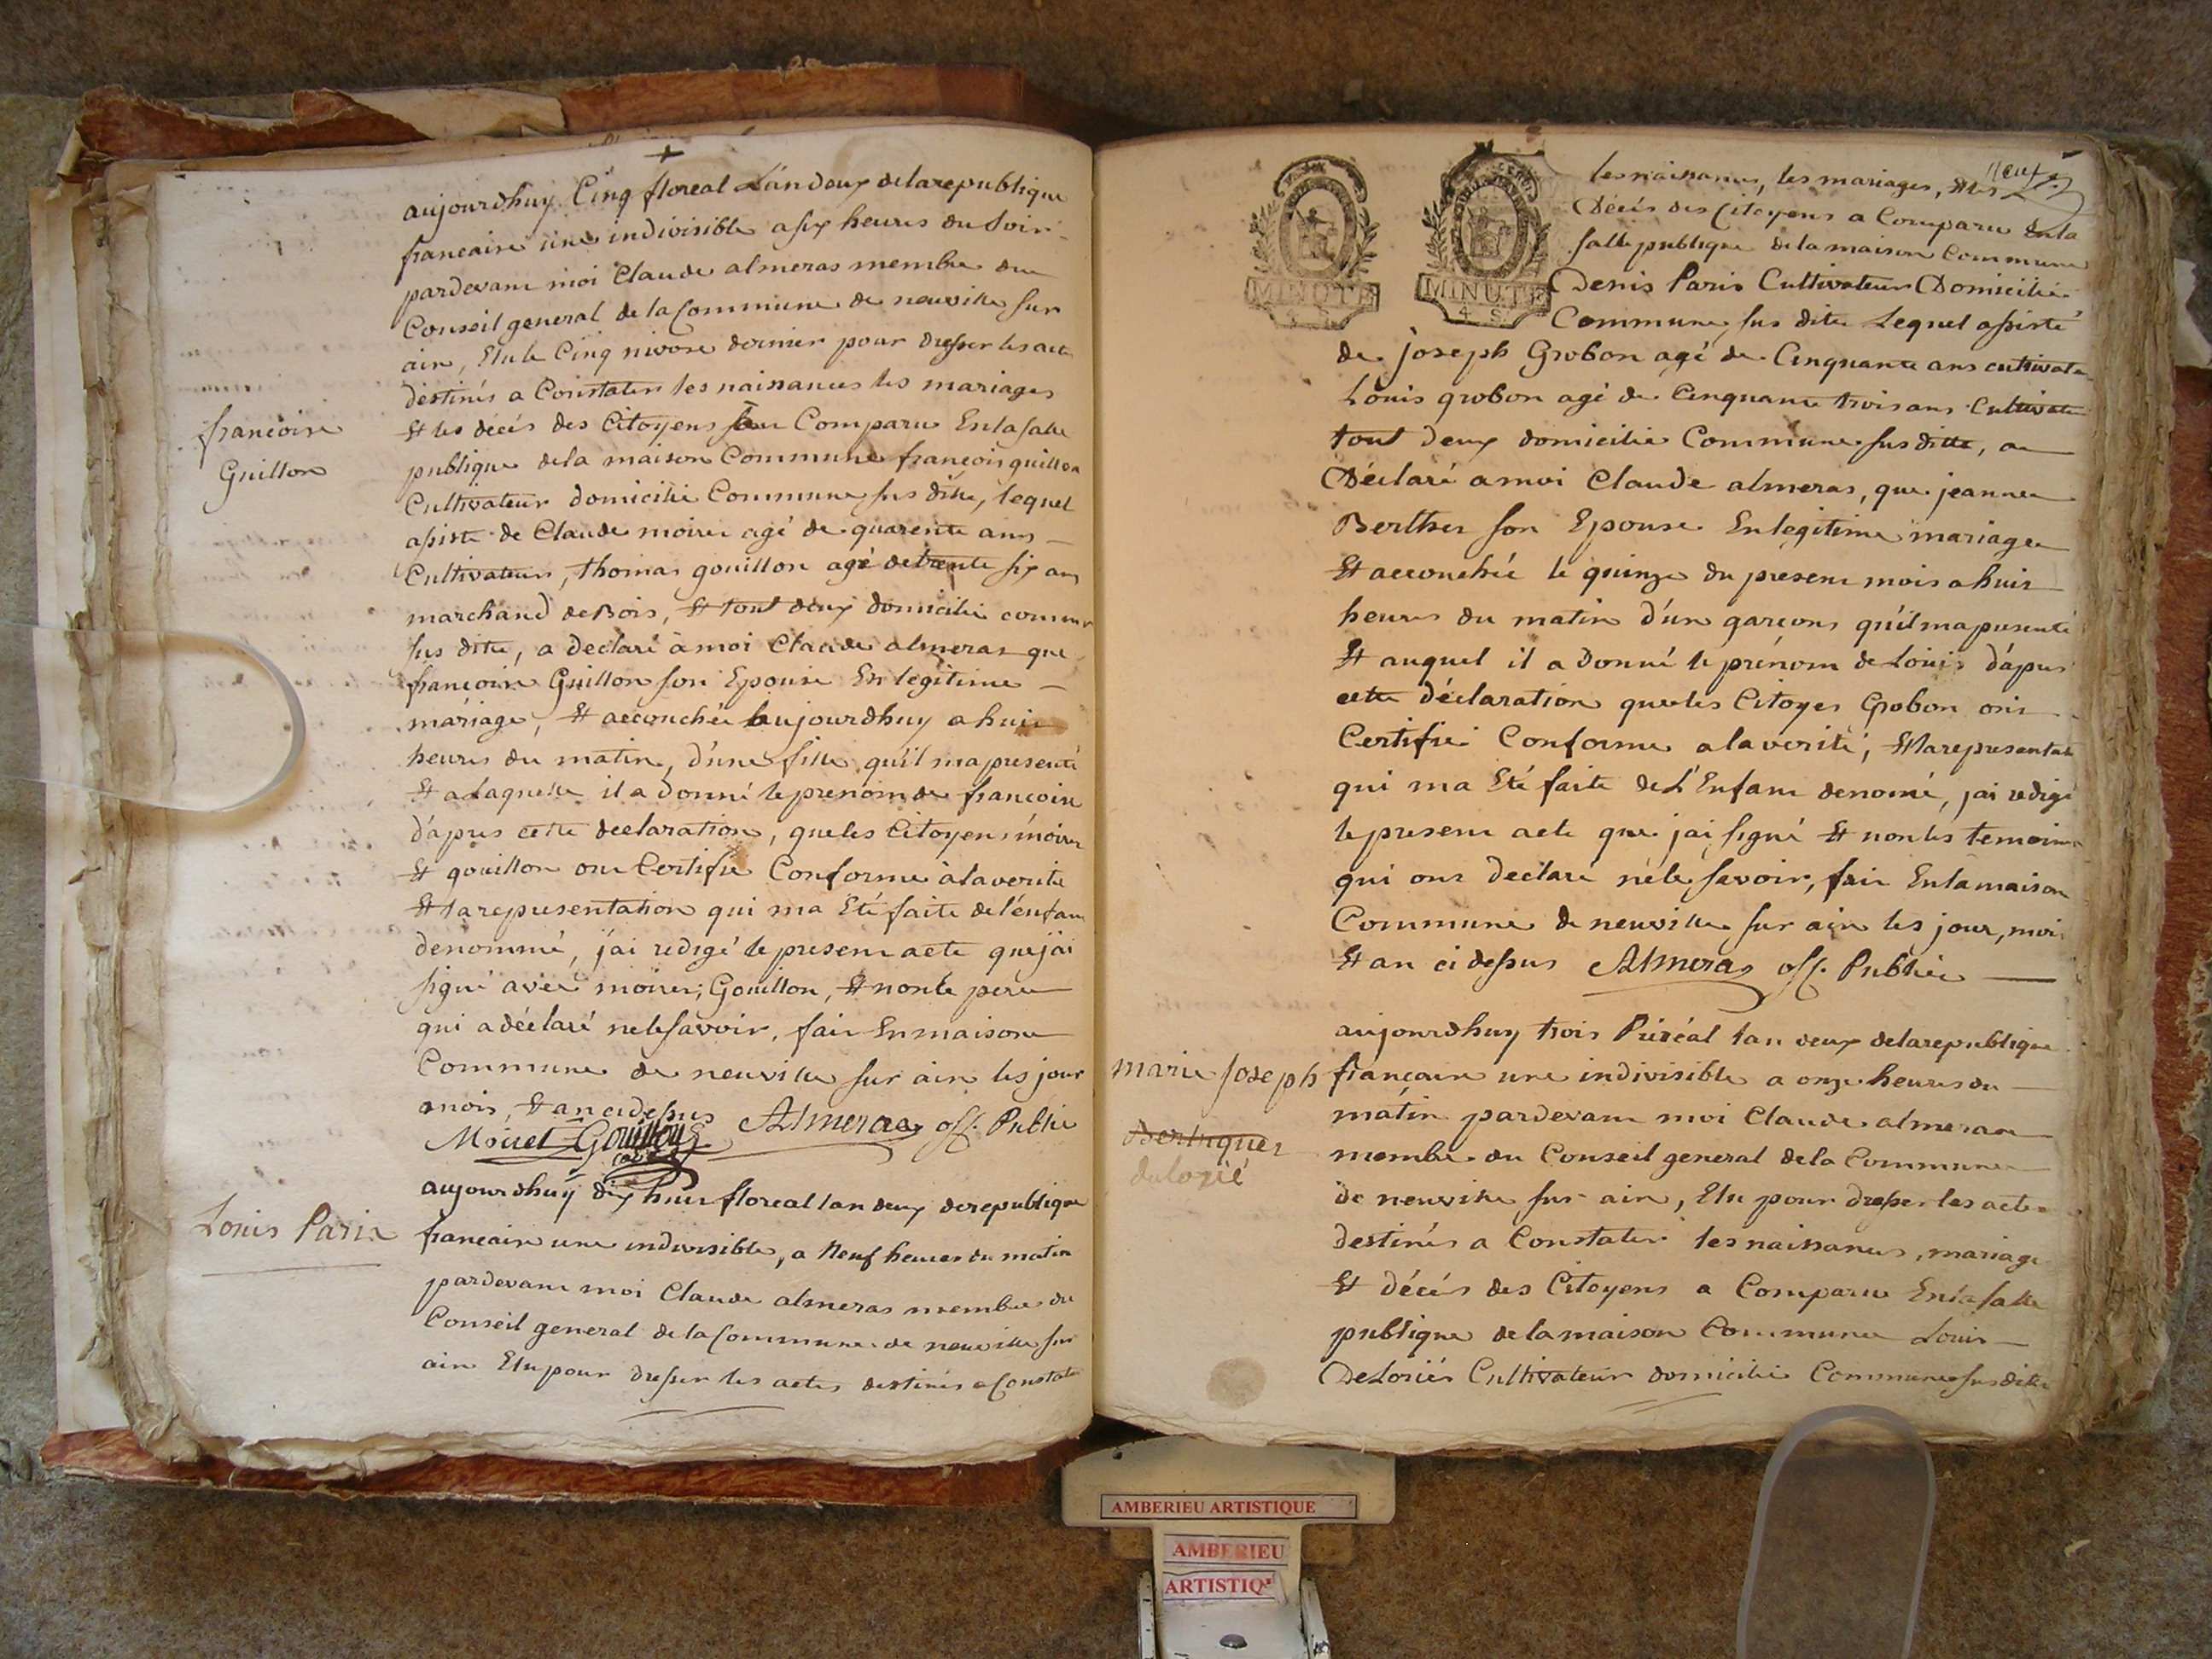 aujourdhuy Cinq floreal L'an deux de la republique
francaise une indivisible a six heures du Soir
pardevant moi Claude almeras membre du
Conseil general de la Commune de neuville sur
ain, Elu le Cinq nivose dernier pour dresser les acte
destinés a Constater les naissances les mariages
Et les décés des Citoyens Comparu En la salle
francoise
Guillon
publique de la maison Commune françois guillon
Cultivateur domicilié Commune sus ditte, lequel
assisté de Claude moiret agé de quarente ans
Cultivateur, thomas gouillon agé de trente six ans
marchand de Bois, Et tout deux domicilié commune
sus ditte, a declaré à moi Claude almeras que
francoise Guillon son Epouse En legitime
mariage, Et accouchée aujourdhuy a huit
heures du matin, d'une fille qu'il ma presenté
Et a laquelle il a donné le prenom de francoise
d'apres cette declaration, que les Citoyens moiret
Et gouillon ont Certifié Conforme à la verité
Et la representation qui ma Eté faite de l'enfant
denommé, j'ai redigé le present acte que j'ai
signé avec moiret, Gouillon, Et non le pere
qui a déclaré ne le savoir, fait En maison
Commune de neuville sur ain les jour
mois, Et an ci dessus Almeras off. Public
Moiret Gouillon
Louis Paris
aujourdhuy dix huit floreal lan deux de republique
francaise une indivisible, a Neuf heures du matin
pardevant moi Claude almeras membre du
Conseil general de la Commune de neuville sur
ain Elu pour dresser les actes destinés a Constater
neuf
MINUTE
4. S.
MINUTE
4. S.
les naissances, les mariages, Et les
Décés des Citoyens a Comparu En la
salle publique de la maison Commune
Denis Paris Cultivateur Domicilié
Commune sus dite Lequel assisté
de joseph Grobon agé de Cinquante ans cultivate
Louis grobon agé de Cinquante trois ans Cultivate
tout deux domicilié Commune sus ditte, a
Déclaré a moi Claude almeras, que jeanne
Berther son Epouse En legitime mariage
Et accouchée le quinze du present mois a huit
heures du matin d'un garcons qu'il ma presenté
Et auquel il a Donné le prénom de Louis d'apres
cette déclaration que les Citoyes Grobon ont
Certifié Conforme a la verité, Et la representati
qui ma Eté faite de L'Enfant denomé, jai redigé
le present acte que jai signé Et non les temoins
qui ont declaré né le savoir, fait En la maison
Commune de neuville sur ain les jour, moi
Et an ci dessus Almeras off. Public
aujourdhuy trois Priréal lan deux de la republique
marie joseph
Berluquer
delorié
francaise une indivisible a onze heures du
matin pardevant moi Claude almeras
membre du Conseil general de la Commune
de neuville sur ain, Elu pour dresser les acte
destinés a Constater les naissances, mariage
Et décés des Citoyens a Comparu En la salle
publique de la maison Commune Louis
Deloriés Cultivateur domicilié Commune sus dite
AMBERIEU ARTISTIQUE
AMBERIEU
ARTISTIQ